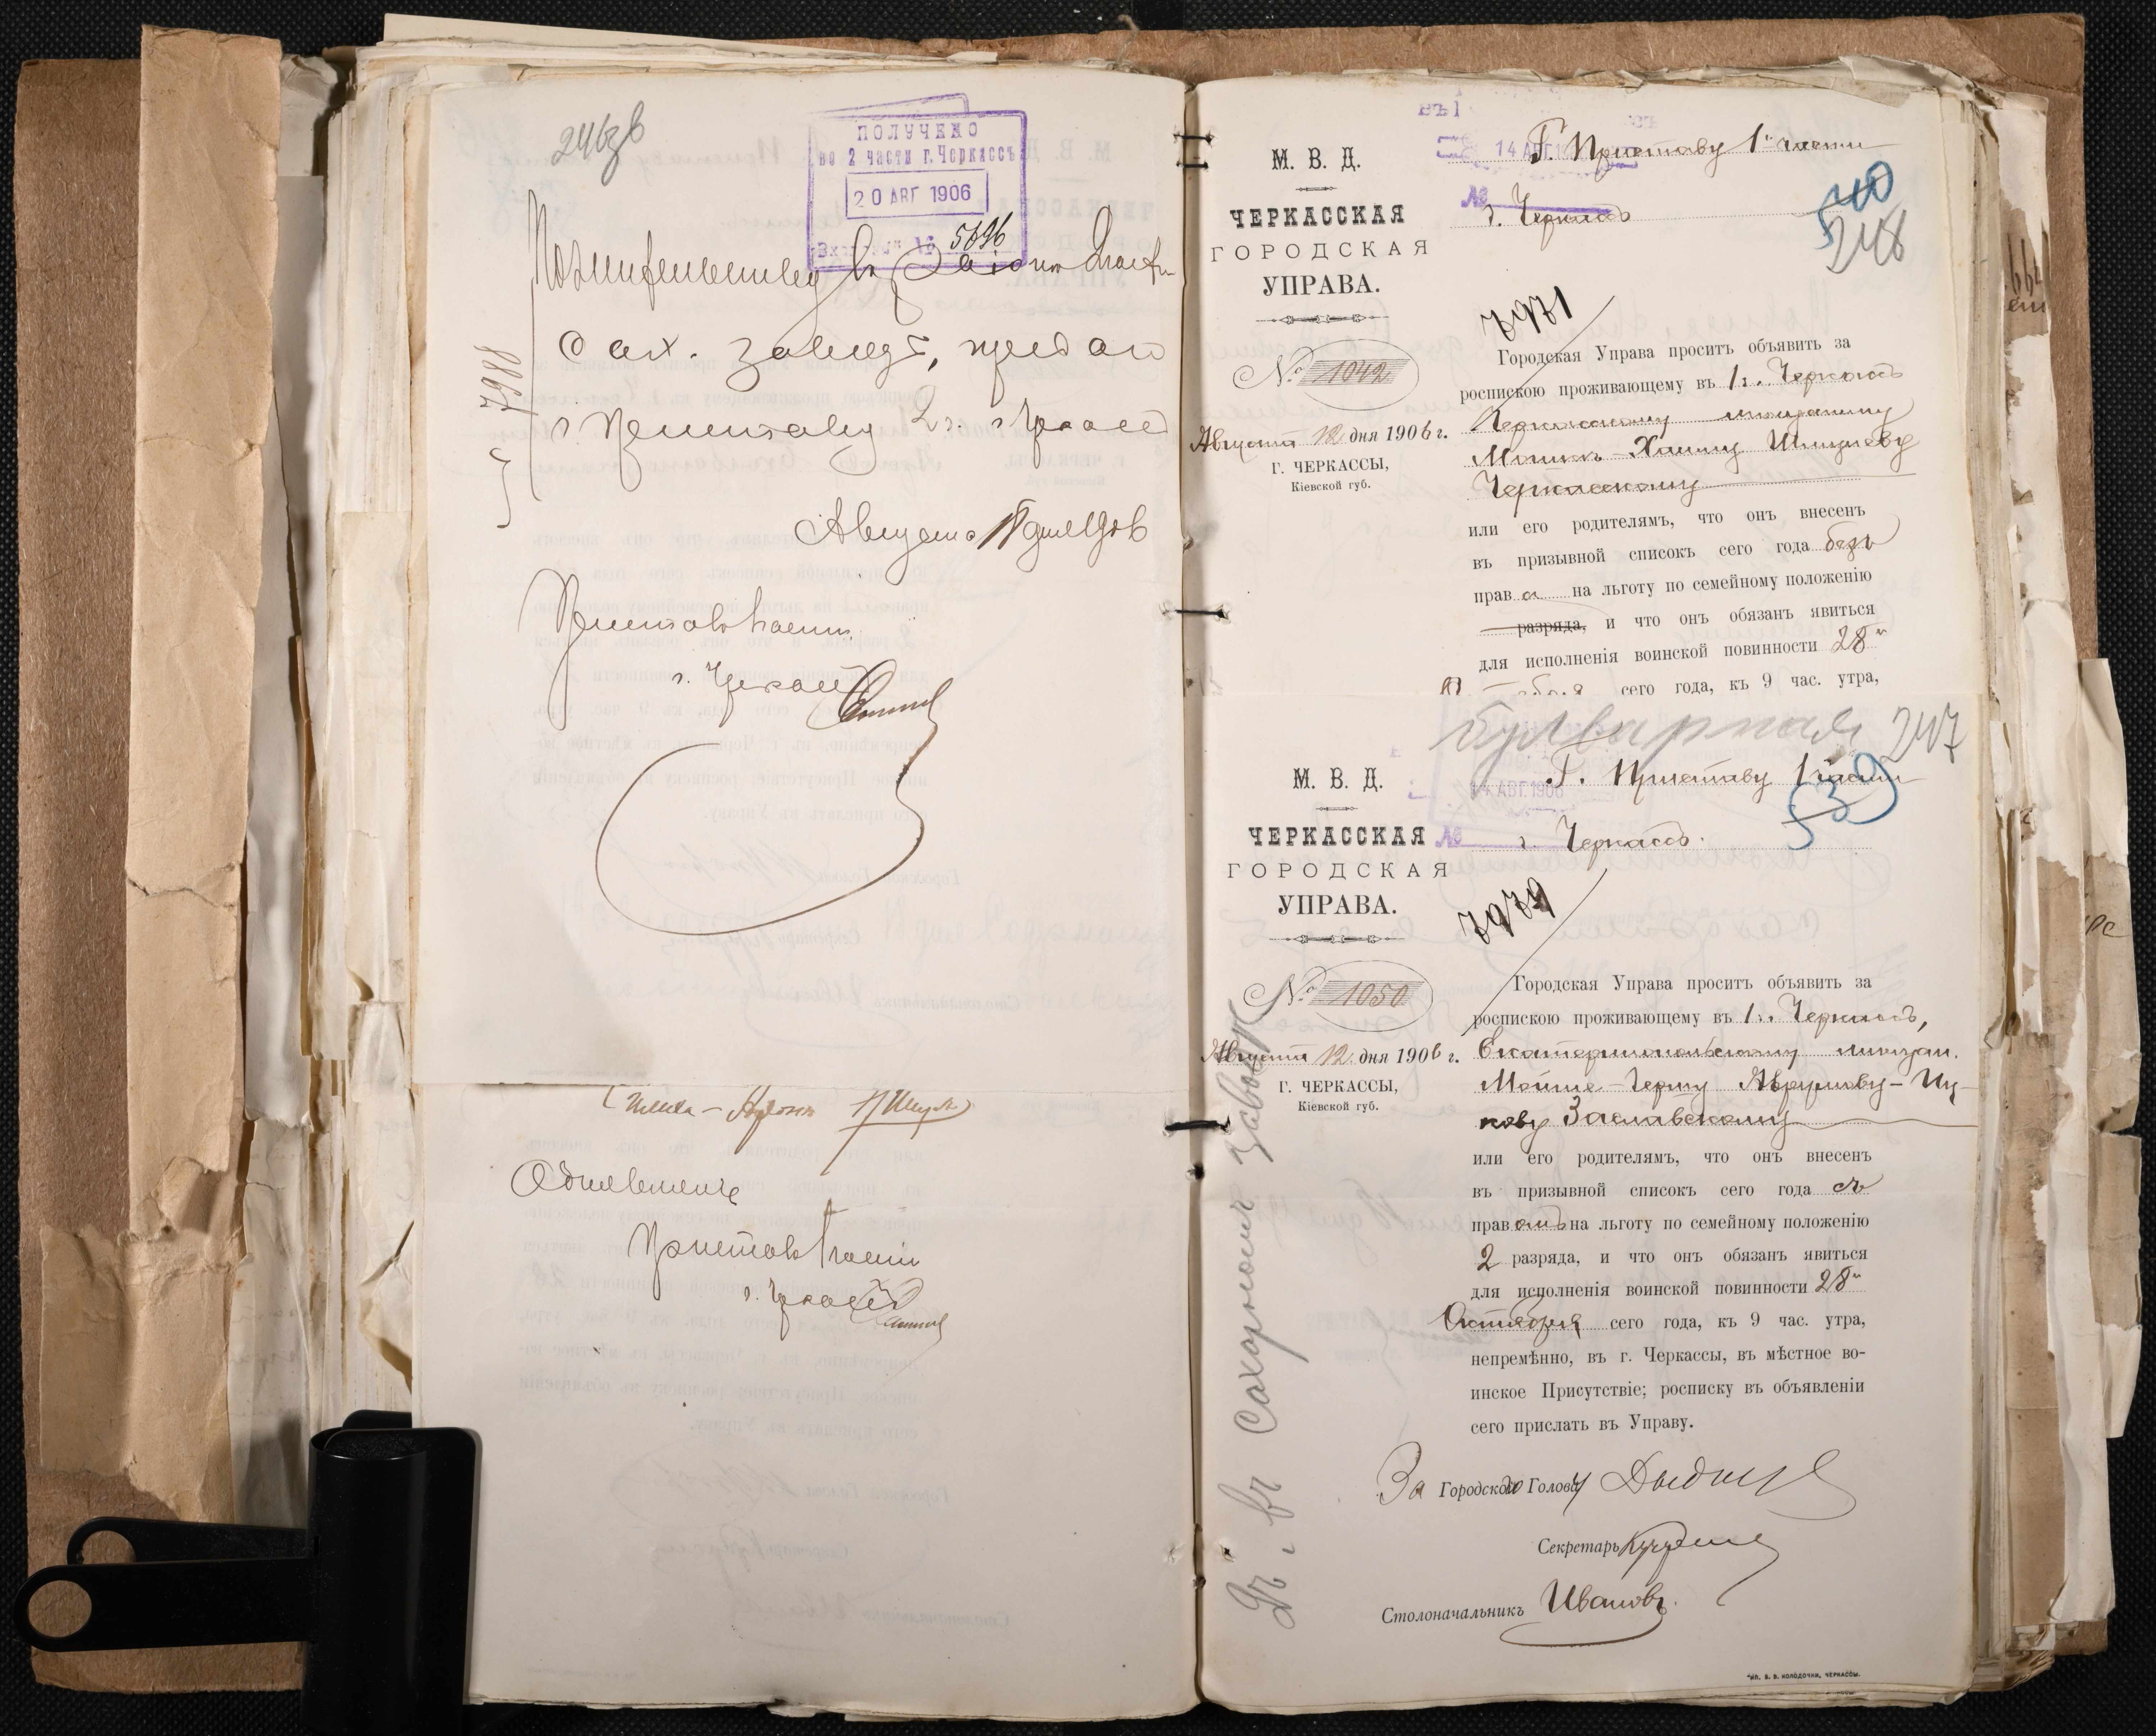 246 зв
ПОЛУЧЕНО
во 2 части г. Черкассъ
20 АВГ 1906
5696
7988
въ Районѣ 2 части
Сах. завода, предаю
г. Приставу 2 ч. г. Черкассъ
Августа 18 дня 1906
Приставъ 1 части
г. Черкассъ
Приставъ 1 части
г. Черкассъ
14 АВГ
Г. Приставу 1й части
№
г. Черкассъ
540
248
М. В. Д.
ЧЕРКАССКАЯ
ГОРОДСКАЯ
УПРАВА.
7971
№ 1042
Августа 12 дня 1906 г.
Г. ЧЕРКАССЫ,
Кіевской губ.
Городская Управа проситъ объявить за
роспискою проживающему въ г. Черкассъ
Черкасскому мещанину
Мошко-Хаиму Шмулеву
Черкасскому
или его родителямъ, что онъ внесенъ
въ призывной списокъ сего года безъ
права на льготу по семейному положенію
разряда, и что онъ обязанъ явиться
для исполненія воинской повинности 28го
сего года, къ 9 час. утра,
Бульварная
247
М. В. Д.
ЧЕРКАССКАЯ
ГОРОДСКАЯ
УПРАВА.
14 АВГ. 1906
Г. Приставу 1 части
539
№
г. Черкассъ.
7979
№ 1050
Августа 12 дня 1906 г.
Г. ЧЕРКАССЫ,
Кіевской губ.
Городская Управа проситъ объявить за
роспискою проживающему въ г. Черкассъ,
Екатеринопольскому мещан.
Мойше-Гершу Аврумову-Иц-
кову Заславскому
или его родителямъ, что онъ внесенъ
въ призывной списокъ сего года съ
правомъ на льготу по семейному положенію
2 разряда, и что онъ обязанъ явиться
для исполненія воинской повинности 28го
Октября сего года, къ 9 час. утра,
непремѣнно, въ г. Черкассы, въ мѣстное во-
инское Присутствіе; росписку въ объявленіи
сего прислать въ Управу.
За Городского Голову
Секретарь
Столоначальникъ Ивановъ.
въ Сахарномъ заводѣ
ТИП. В. В. КОЛОДОЧКИ, ЧЕРКАССЫ.